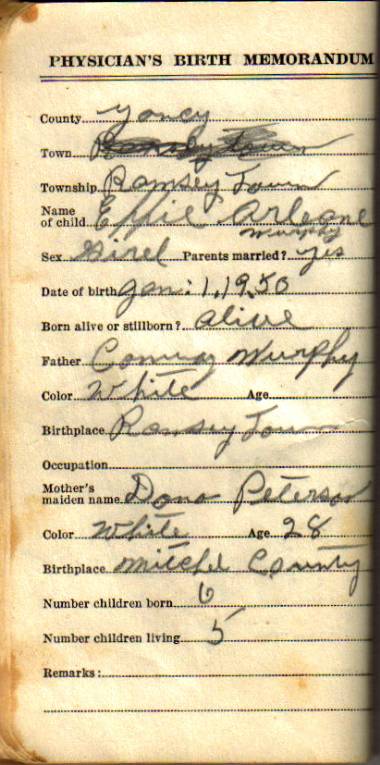 PHYSICIAN'S BIRTH MEMORANDUM
County Yancy
Town
Township Ramsey Town
Name of child Effie Arleane
Murphy
Sex Girel Parents married? yes
Date of birth Jan: 1, 1950
Born alive or stillborn? alive
Father Murphy
Color White Age
Birthplace Ramsey Town
Occupation
Mother's maiden name Dona Peterson
Color White Age 28
Birthplace Mitchel County
Number children born 6
Number children living 5
Remarks: